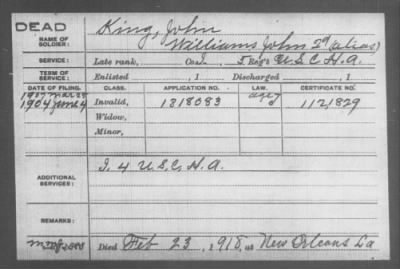 DEAD
NAME OF SOLDIER: King, John
Williams John 2d (alias)
SERVICE: Late rank, Co. I. 5 Reg't U.S.C.H.A.
TERM OF SERVICE: Enlisted , 1 Discharged , 1
DATE OF FILING. CLASS. APPLICATION NO. LAW. CERTIFICATE NO.
1907 Mar 28 age
1904 June 4 Invalid, 1318083 1121829
Widow,
Minor,
ADDITIONAL SERVICES: I. 4 U.S.C.H.A.
REMARKS:
Died Feb 23, 1918, at New Orleans La